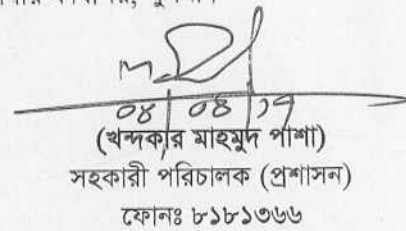 ০৪/০৪/১৭
(খন্দকার মাহমুদ পাশা)
সহকারী পরিচালক (প্রশাসন)
ফোনঃ ৮১৮১৩৬৬